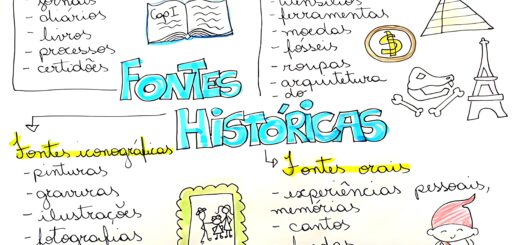 - jornais
- diários
- livros
- processos
- certidões
Cap I
- utensílios
- ferramentas
- moedas
- fósseis
- roupas
- arquitetura
do
$
FONTES
HISTÓRICAS
Fontes iconográficas
- pinturas
- gravuras
- ilustrações
- fotografias
Fontes orais
- experiências pessoais,
memórias
- cantos